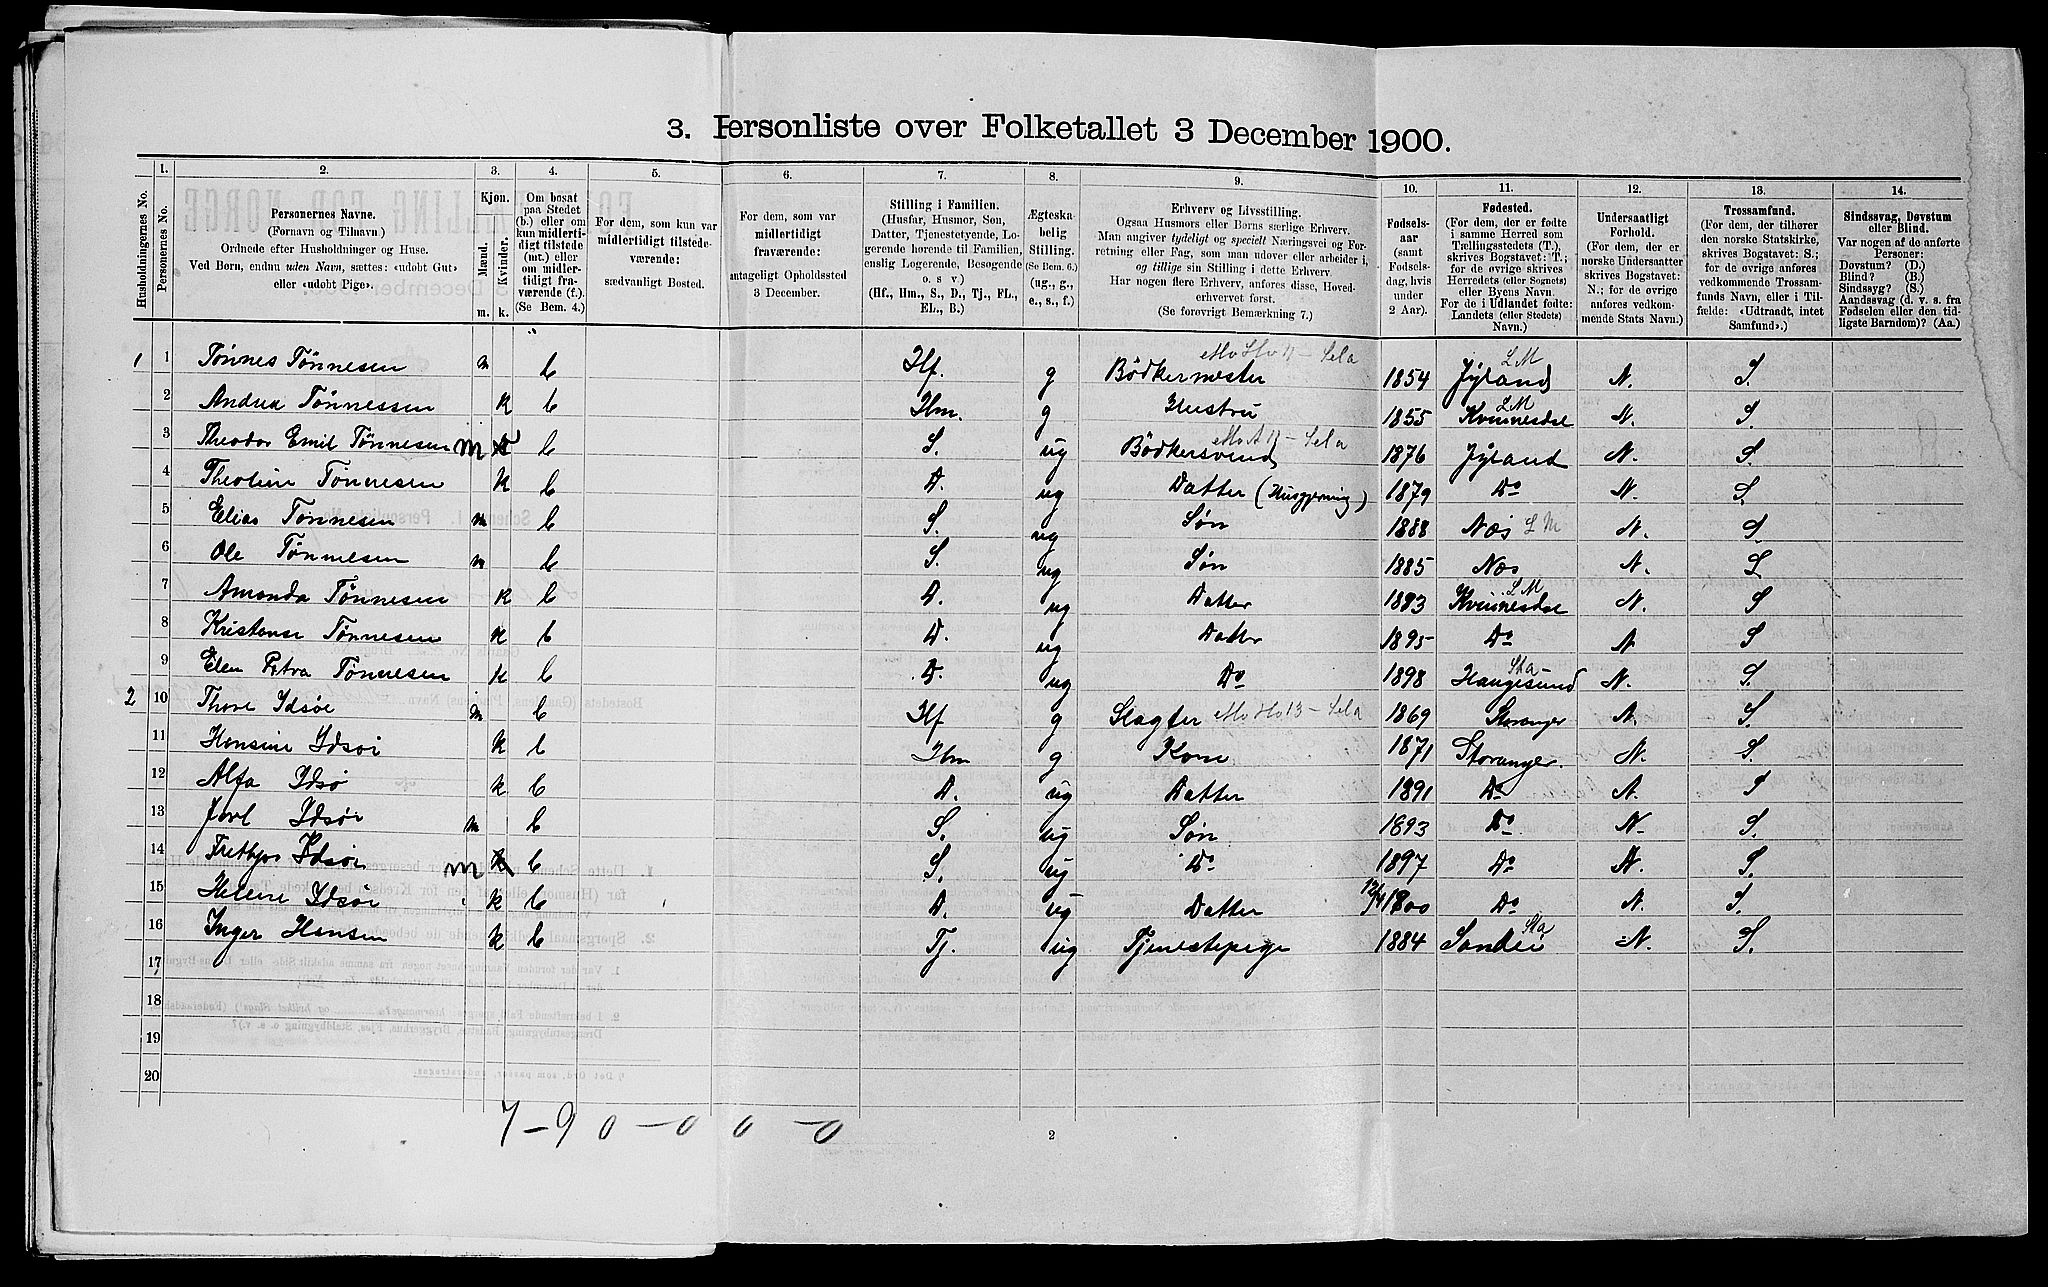 3. Personliste over Folketallet 3 December 1900.
Husholdningernes No.
1. Personernes No.
2. Personernes Navne. (Fornavn og Tilnavn) Ordnede efter Husholdninger og Huse. Ved Børn, endnu uden Navn, sættes: «udøbt Gut» eller «udøbt Pige».
3. Kjøn. Mænd. m. Kvinder. k.
4. Om bosat paa Stedet (b.) eller om kun midlertidigt tilstede (mt.) eller om midlertidigt fraværende (f.). (Se Bem. 4.)
5. For dem, som kun var midlertidigt tilstedeværende: sædvanligt Bosted.
6. For dem, som var midlertidigt fraværende: antageligt Opholdssted 3 December.
7. Stilling i Familien. (Husfar, Husmor, Søn, Datter, Tjenestetyende, Logerende hørende til Familien, enslig Logerende, Besøgende o. s v) (Hf., Hm., S., D., Tj., FL., EL., B.)
8. Ægteskabelig Stilling. (Se Bem. 6.) (ug., g., e., s., f.)
9. Erhverv og Livsstilling. Ogsaa Husmors eller Børns særlige Erhverv. Man angiver tydeligt og specielt Næringsvei og Forretning eller Fag, som man udøver eller arbeider i, og tillige sin Stilling i dette Erhverv. Har nogen flere Erhverv, anføres disse, Hovederhvervet først. (Se forøvrigt Bemærkning 7.)
10. Fødselsaar (samt Fødselsdag, hvis under 2 Aar).
11. Fødested. (For dem, der er fødte i samme Herred som Tællingsstedets (T.), skrives Bogstavet: T.; for de øvrige skrives Herredets (eller Sognets) eller Byens Navn. For de i Udlandet fødte: Landets (eller Stedets) Navn.)
12. Undersaatligt Forhold. (For dem, der er norske Undersaatter skrives Bogstavet: N.; for de øvrige anføres vedkommende Stats Navn.)
13. Trossamfund. (For dem, der tilhører den norske Statskirke, skrives Bogstavet: S.; for de øvrige anføres vedkommende Trossamfunds Navn, eller i Tilfælde: «Udtraadt, intet Samfund».)
14. Sindssvag, Døvstum eller Blind. Var nogen af de anførte Personer: Døvstum? (D.) Blind? (B.) Sindssyg? (S.) Aandssvag (d. v. s. fra Fødselen eller den tidligste Barndom)? (Aa.)
1 1 Tønnes Tønnesen m b Hf. g Bödkermester 1854 Jyland L M N. S.
2 Andrea Tönnessen k b Hm. g Hustru 1855 Kvinnesdal L M N. S.
3 Theodor Emil Tönnesen m b S. ug Bödkersvend 1876 Jyland N. S.
4 Theoline Tönnesen k b D. ug Datter (Husgjerning) 1879 Do N. S.
5 Elias Tønnesen m b S. ug Søn 1888 Næs L M N. S.
6 Ole Tønnesen m b S. ug Søn 1885 Næs N. S
7 Amanda Tönnesen k b D. ug Datter 1893 Kvinnesdal L M N. S
8 Kristense Tønnesen k b D. ug Datter 1895 Do N S
9 Elen Petra Tønnesen k b D. ug Do 1898 Haugesund Sta N. S.
2 10 Thore Idsöe m b Hf g Slagter 1869 Stavanger N. S.
11 Hansine Idsöe k b Hm g Kone 1871 Stavanger. N. S.
12 Alfa Idsö k b D. ug Datter 1891 Do N. S
13 Jarl Idsöe m b S. ug Søn 1893 Do N. S.
14 Frethjov Idsöe m b S. ug Do 1897 Do N. S.
15 Helene Idsöe k b D. ug Datter 1800 Do N. S.
16 Inger Hansen k b Tj. ug Tjenestepige 1884 Sandei Sta N. S.
17
18
19
20
7 - 9 0 - 0 0 - 0
2